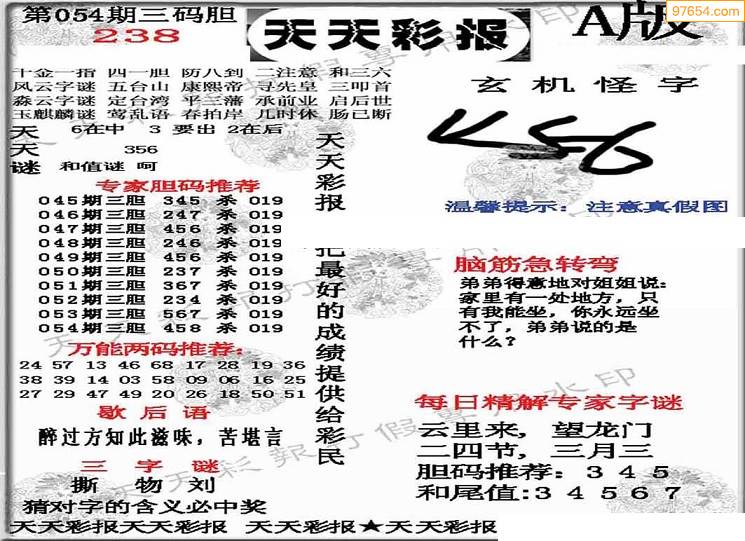 第054期三码胆
238
天天彩报
A版
97654.com
千金一指 四一胆 防八到 二注意 和三六
风云字谜 五台山 康熙帝 寻先皇 三叩首
淼云字谜 定台湾 平三藩 承前业 启后世
玉麒麟谜 莺乱语 春拍岸 几时休 肠已断
天 6在中 3 要出 2在后
天 356
谜 和值谜 呵
专家胆码推荐
045期三胆 345 杀 019
046期三胆 247 杀 019
047期三胆 456 杀 019
048期三胆 246 杀 019
049期三胆 456 杀 019
050期三胆 237 杀 019
051期三胆 367 杀 019
052期三胆 234 杀 019
053期三胆 567 杀 019
054期三胆 458 杀 019
万能两码推荐:
24 57 13 46 68 17 28 19 36
38 39 14 03 58 09 06 16 25
27 29 47 49 20 26 18 50 51
歇后语
醉过方知此滋味，苦堪言
三字谜
撕 物 刘
猜对字的含义必中奖
天天彩报
把最好的成绩提供给彩民
玄机怪字
温馨提示: 注意真假图
脑筋急转弯
弟弟得意地对姐姐说:
家里有一处地方，只
有我能坐，你永远坐
不了，弟弟说的是
什么?
每日精解专家字谜
云里来, 望龙门
二四节, 三月三
胆码推荐: 3 4 5
和尾值:3 4 5 6 7
天天彩报天天彩报 天天彩报★天天彩报